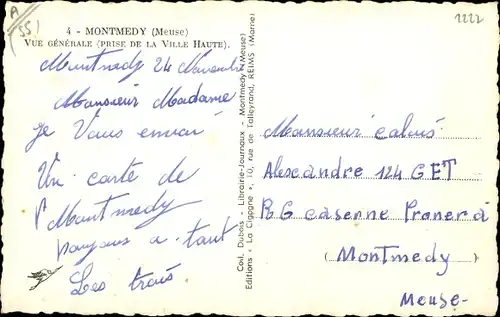 A
(55)
4 - MONTMEDY (Meuse)
VUE GÉNÉRALE (PRISE DE LA VILLE HAUTE).
Montmedy 24 Novembre
Monsieur Madame
Je Vous envoi
Un carte de
Montmedy
a tout
Les trois
Coll. Dubois - Librairie-Journaux - Montmédy (Meuse)
Editions « La Cigogne », 10, rue de Talleyrand, REIMS (Marne)
1222
Monsieur
Alexcandre 124 GET
RG caserne
(Montmedy
Meuse-